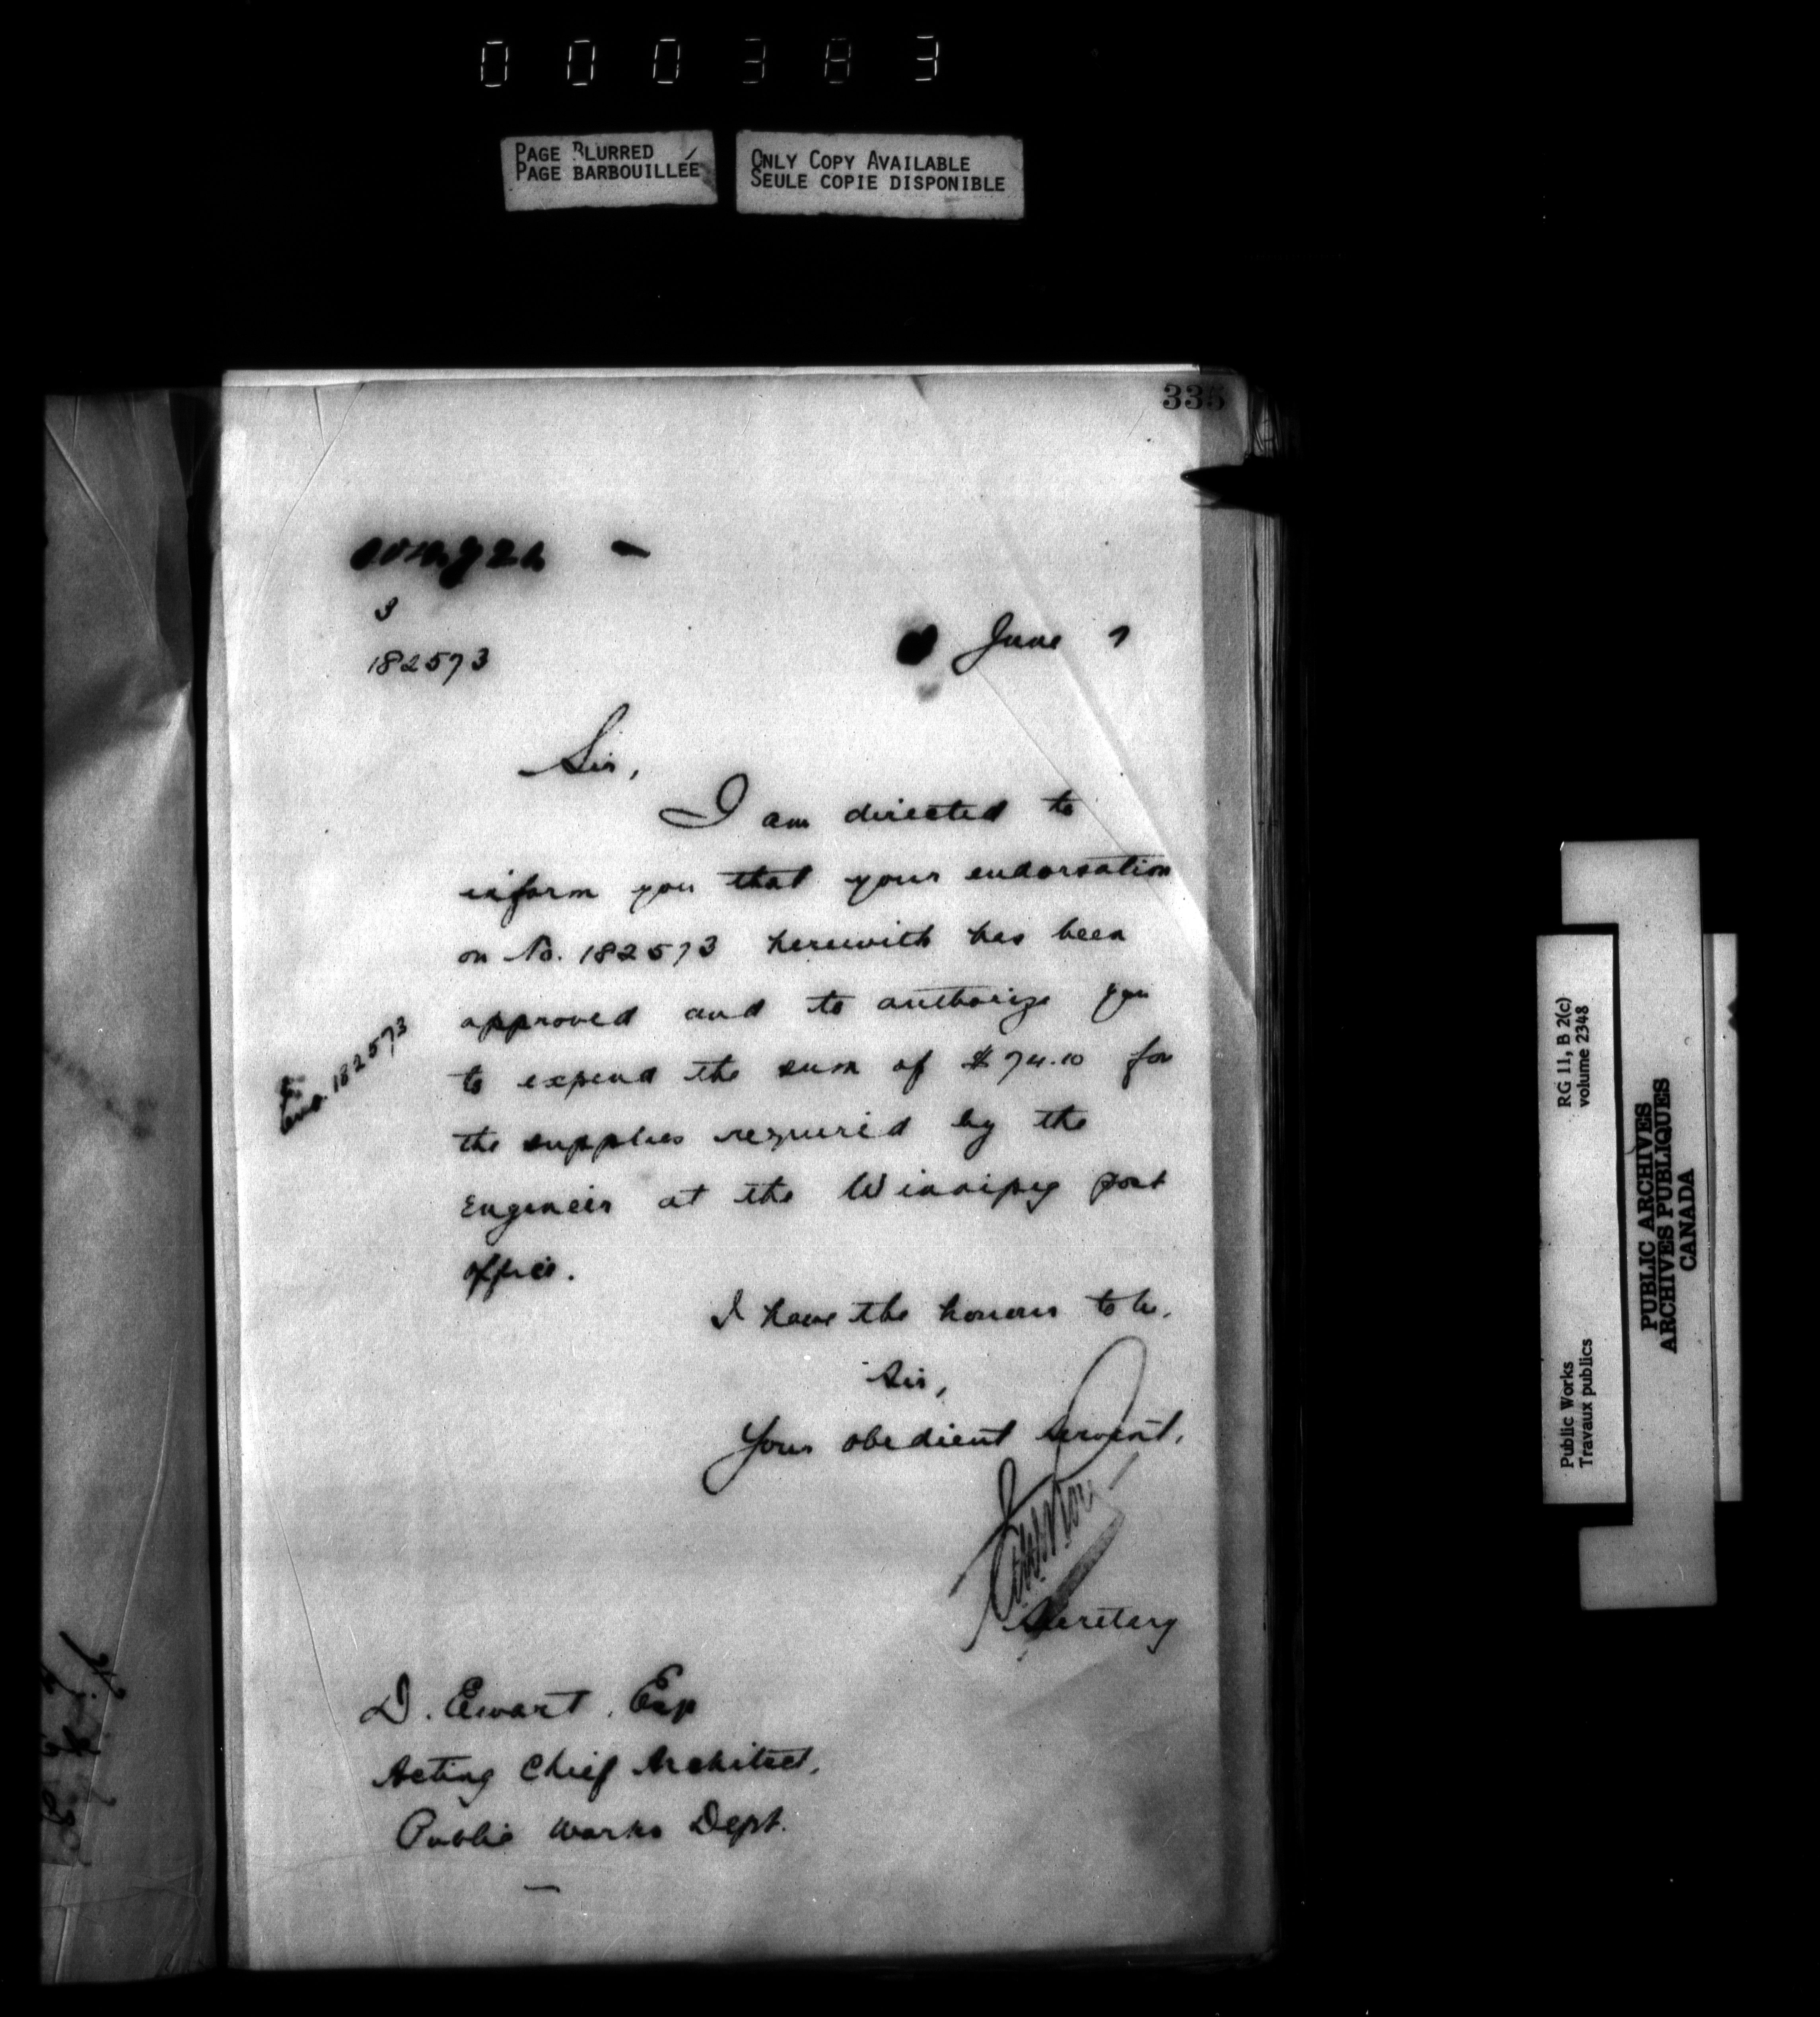 000383
PAGE BLURRED
PAGE BARBOUILLÉE
ONLY COPY AVAILABLE
SEULE COPIE DISPONIBLE
335
3
182573
June 7
Sir,
I am directed to
inform you that your endorsation
on No. 182573 herewith has been
approved and to authorize you
to expend the sum of $74.10 for
182573
the supplies required by the
Engineer at the Winnipeg post
office.
I have the honour to be,
Sir,
Your obedient servant,
Secretary
D. Ewart, Esq
Acting Chief Architect,
Public Works Dept.
RG 11, B 2(c)
volume 2348
Public Works
Travaux publics
PUBLIC ARCHIVES
ARCHIVES PUBLIQUES
CANADA